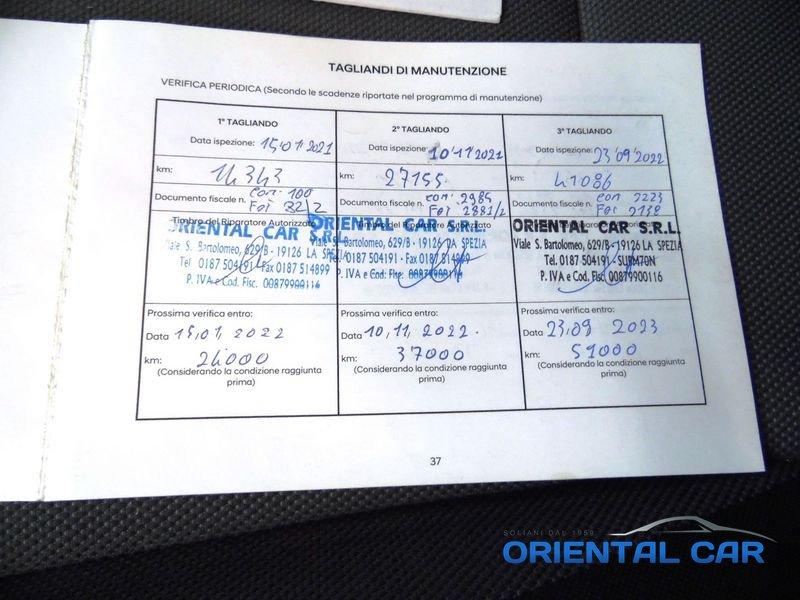 TAGLIANDI DI MANUTENZIONE
VERIFICA PERIODICA (Secondo le scadenze riportate nel programma di manutenzione)
1° TAGLIANDO
Data ispezione: 15/01/2021
km: 14343
Documento fiscale n. com. 100
Fat 32/2
Timbro del Riparatore Autorizzato
ORIENTAL CAR S.R.L.
Viale S. Bartolomeo, 629/B - 19126 LA SPEZIA
Tel 0187 504191 - Fax 0187 514899
P. IVA e Cod. Fisc. 00879900116
Prossima verifica entro:
Data 15,01, 2022
km: 24000
(Considerando la condizione raggiunta
prima)
2° TAGLIANDO
Data ispezione: 10/11/2021
km: 27155
Documento fiscale n. com 2985
Fat 2881/2
Timbro del Riparatore Autorizzato
ORIENTAL CAR S.R.L.
Viale S. Bartolomeo, 629/B - 19126 LA SPEZIA
Tel. 0187 504191 - Fax 0187 514899
P. IVA e Cod. Fisc. 00879900116
Prossima verifica entro:
Data 10,11, 2022.
km: 37000
(Considerando la condizione raggiunta
prima)
3° TAGLIANDO
Data ispezione: 23/09/2022
km: 41086
Documento fiscale n. com 2223
Fat 2138
ORIENTAL CAR S.R.L.
Viale S. Bartolomeo, 629/B - 19126 LA SPEZIA
Tel. 0187 504191 - SUBM70N
P. IVA e Cod. Fisc. 00879900116
Prossima verifica entro:
Data 23,09 2023
km: 51000
(Considerando la condizione raggiunta
prima)
37
SOLIANI DAL 1959
ORIENTAL CAR